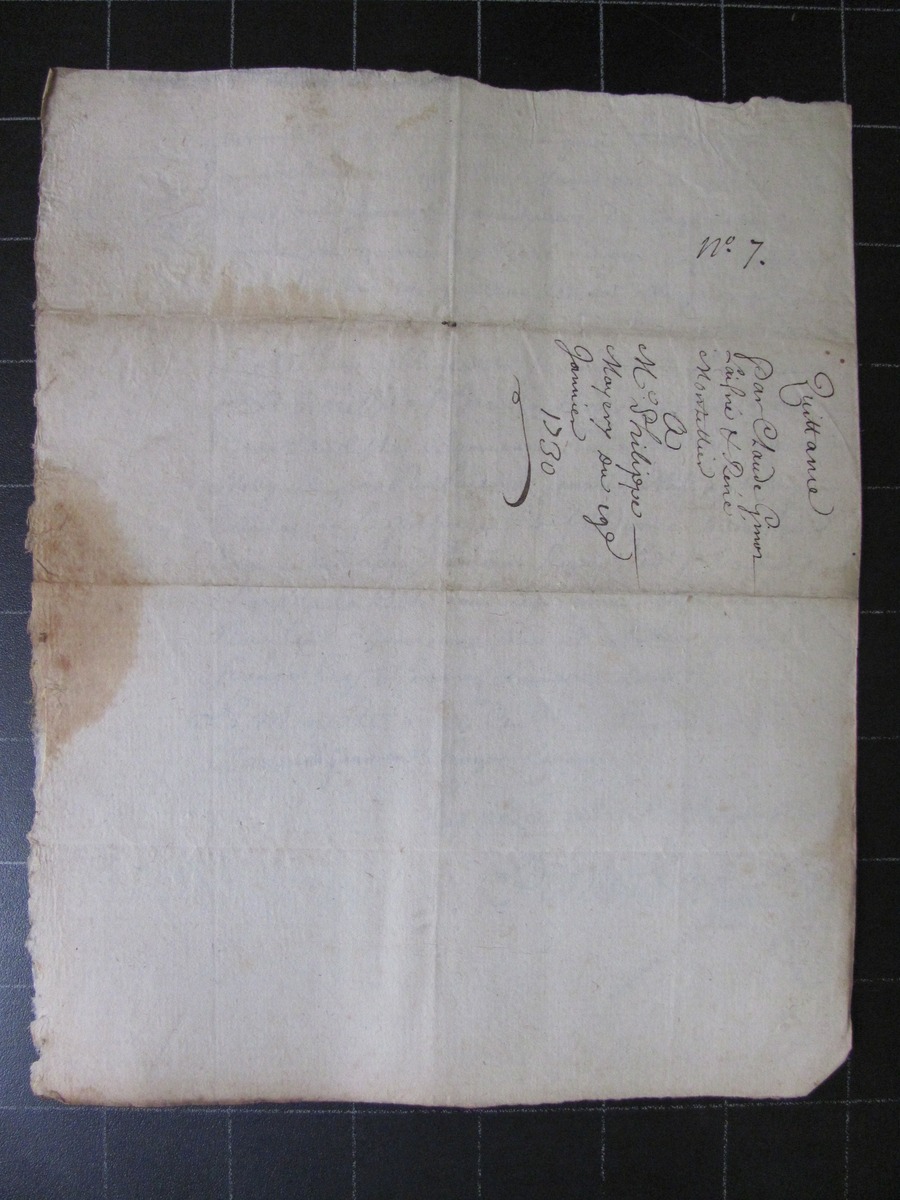 No. 7.
Quittance
par Claude Gimor
Laisné & René
Montellier
A
Mc Philippe
Mayery du 29e
Janvier
1730